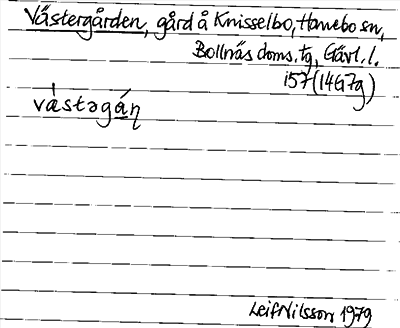 Västergården, gård å Knisselbo, Hanebo sn,
Bollnäs doms. tg, Gävl. l.
i57 (14G7g)
västəgáɳ
Leif Nilsson 1979